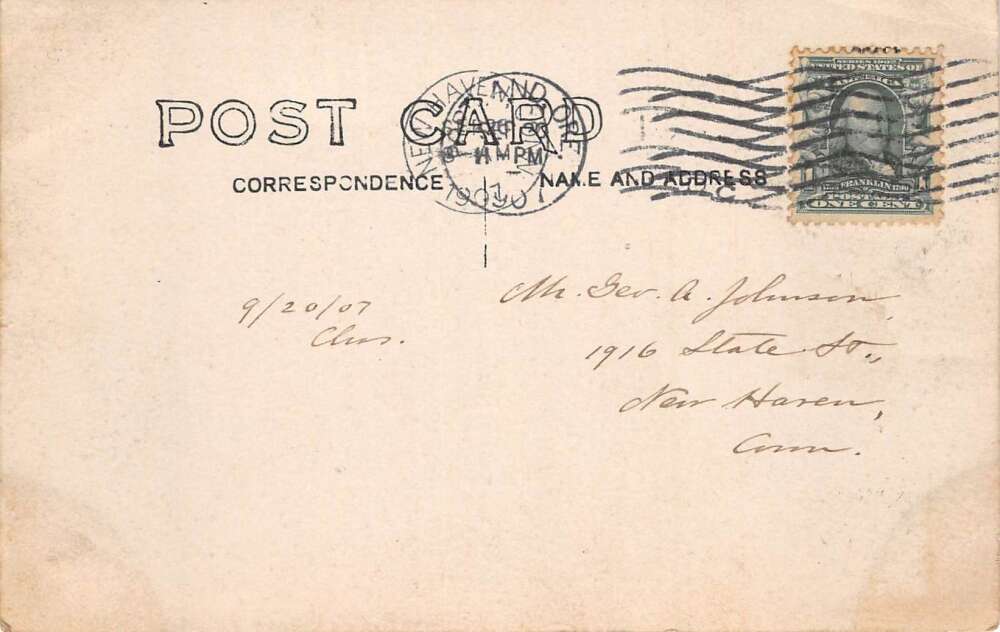 POST CARD
CORRESPONDENCE
NAME AND ADDRESS
NEW HAVEN
PM
190
SERIES 1902
UNITED STATES OF
AMERICA
FRANKLIN
ONE CENT
9/20/07
Chas.
Mr. Geo. A. Johnson,
1916 State St.,
New Haven,
Conn.